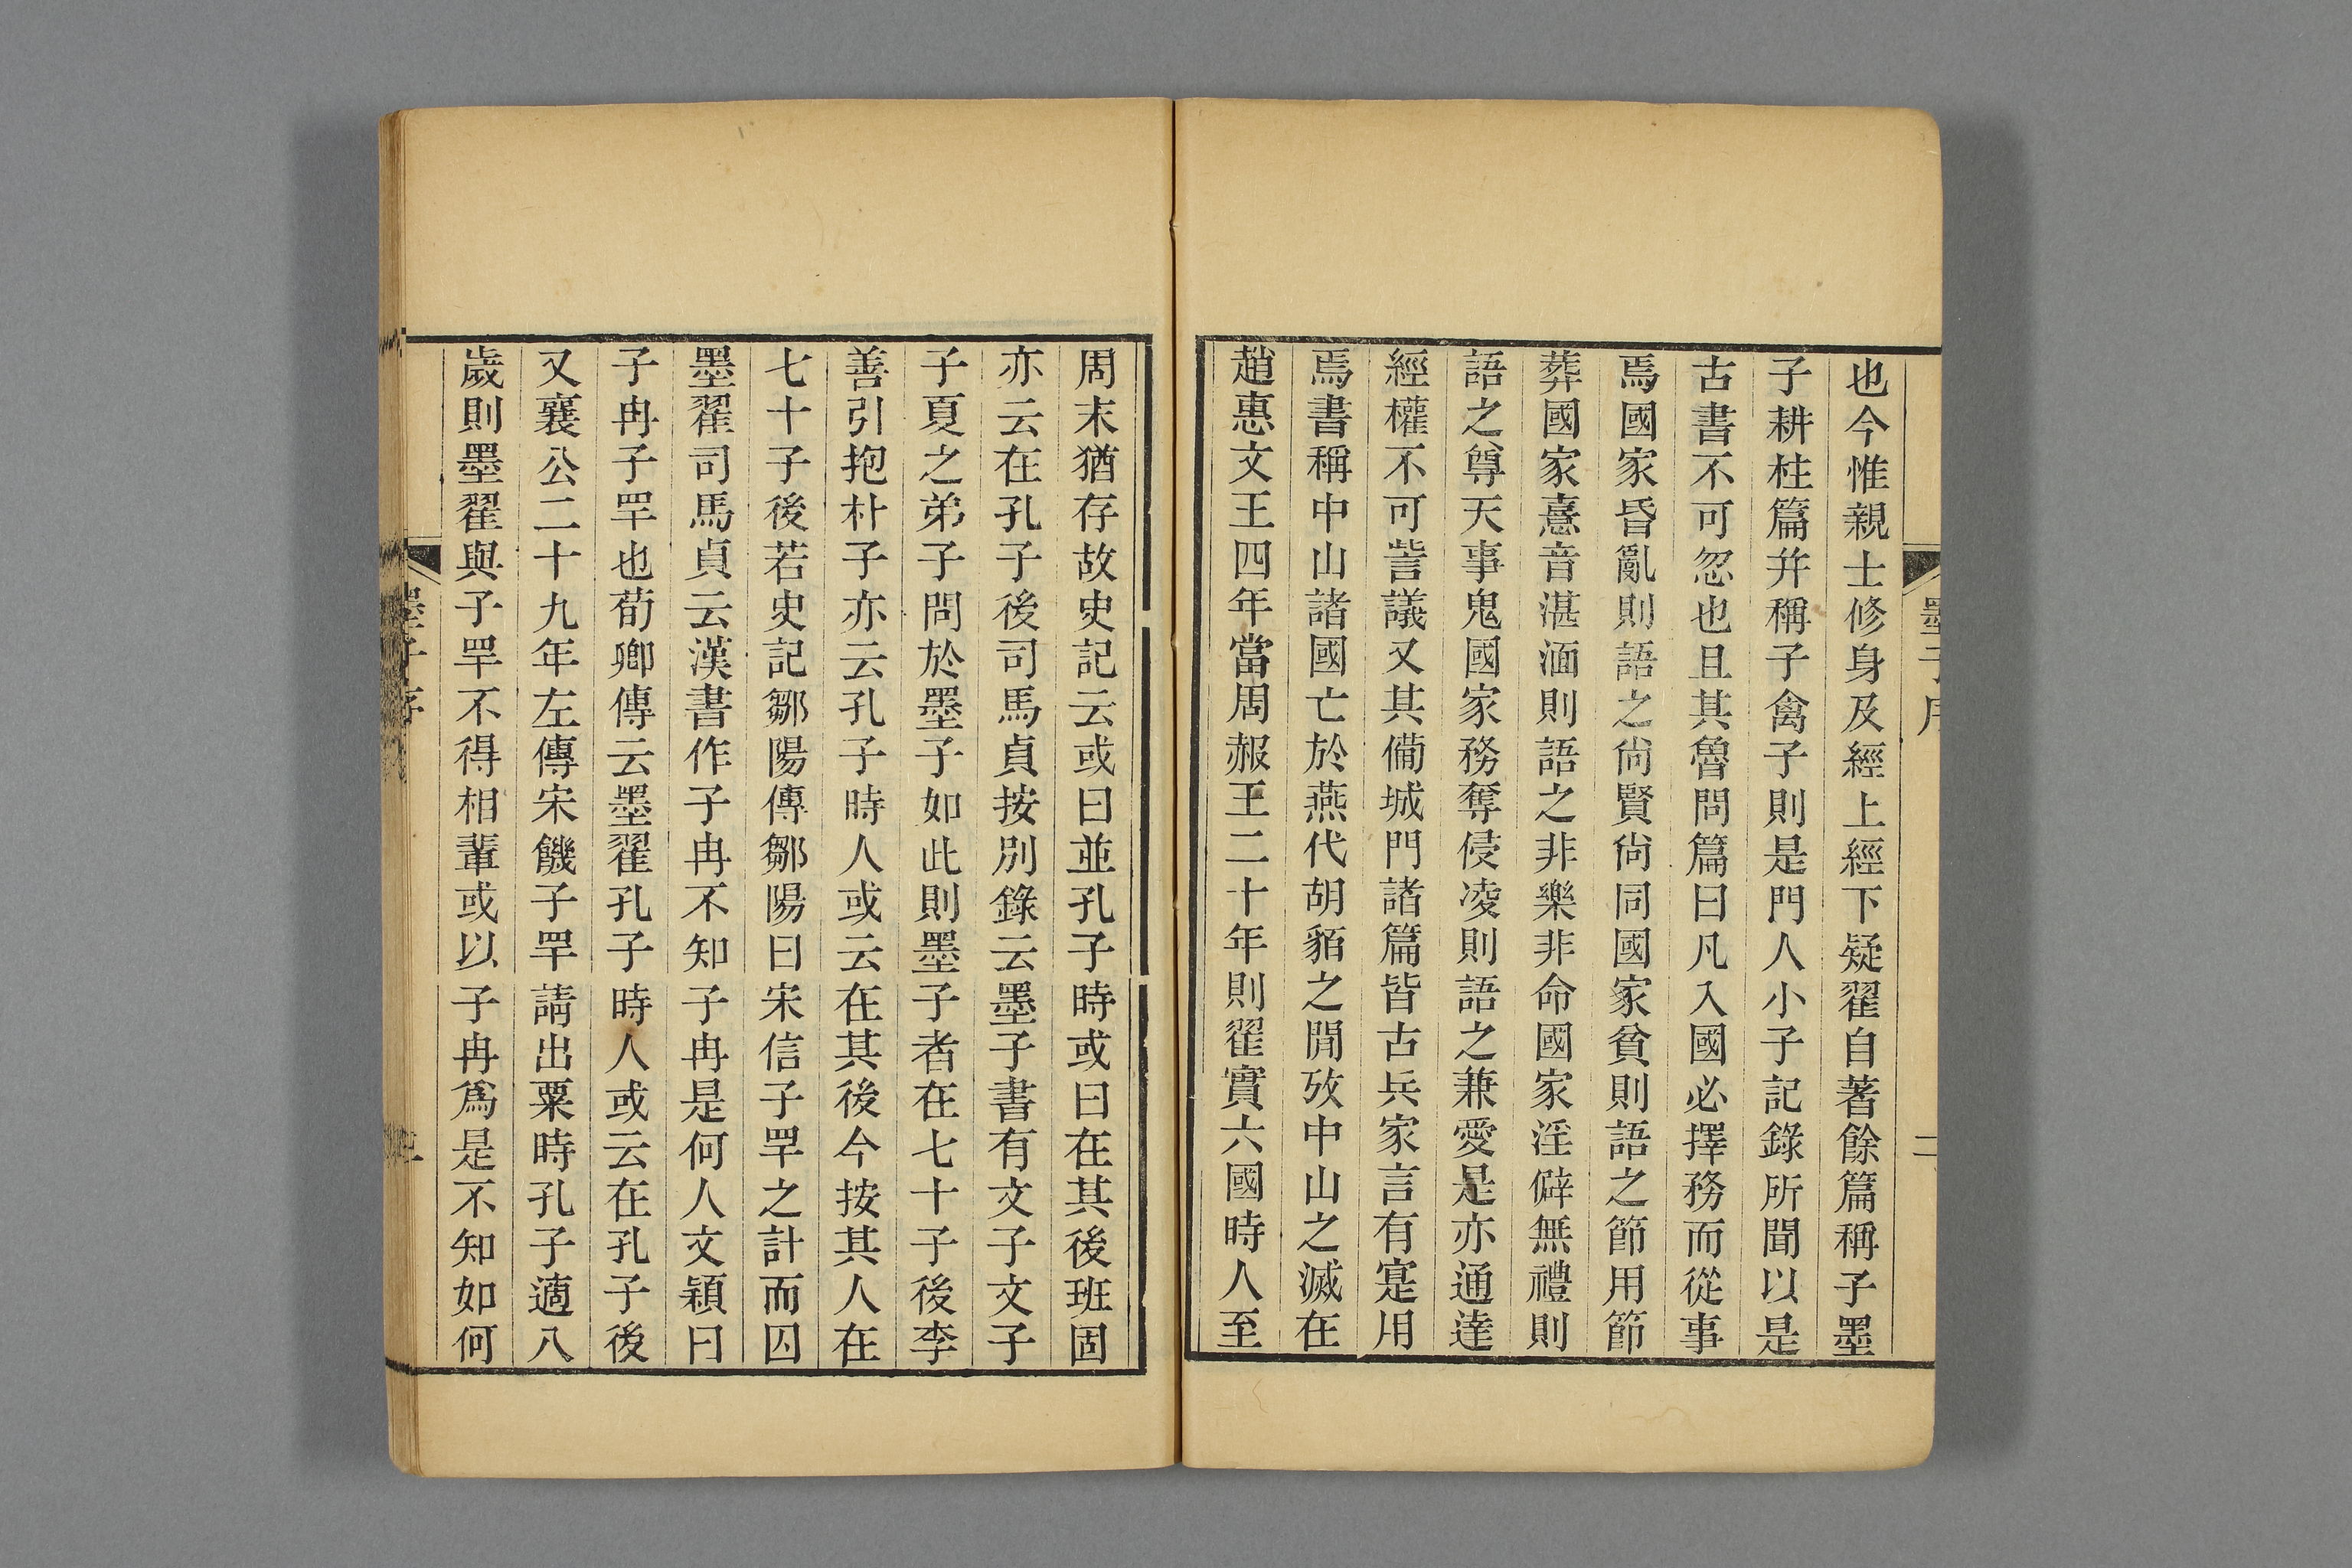 墨子序
二
也今惟親士修身及經上經下疑翟自著餘篇稱子墨
子耕柱篇并稱子禽子則是門人小子記錄所聞以是
古書不可忽也且其魯問篇曰凡入國必擇務而從事
焉國家昏亂則語之尚賢尚同國家貧則語之節用節
葬國家憙音湛湎則語之非樂非命國家淫僻無禮則
語之尊天事鬼國家務奪侵凌則語之兼愛是亦通達
經權不可訾議又其備城門諸篇皆古兵家言有寔用
焉書稱中山諸國亡於燕代胡貊之閒攷中山之滅在
趙惠文王四年當周赧王二十年則翟實六國時人至
周末猶存故史記云或曰並孔子時或曰在其後班固
亦云在孔子後司馬貞按別錄云墨子書有文子文子
子夏之弟子問於墨子如此則墨子者在七十子後李
善引抱朴子亦云孔子時人或云在其後今按其人在
七十子後若史記鄒陽傳鄒陽曰宋信子罕之計而囚
墨翟司馬貞云漢書作子冉不知子冉是何人文穎曰
子冉子罕也荀卿傳云墨翟孔子時人或云在孔子後
又襄公二十九年左傳宋饑子罕請出粟時孔子適八
歲則墨翟與子罕不得相輩或以子冉爲是不知如何
墨子序
三